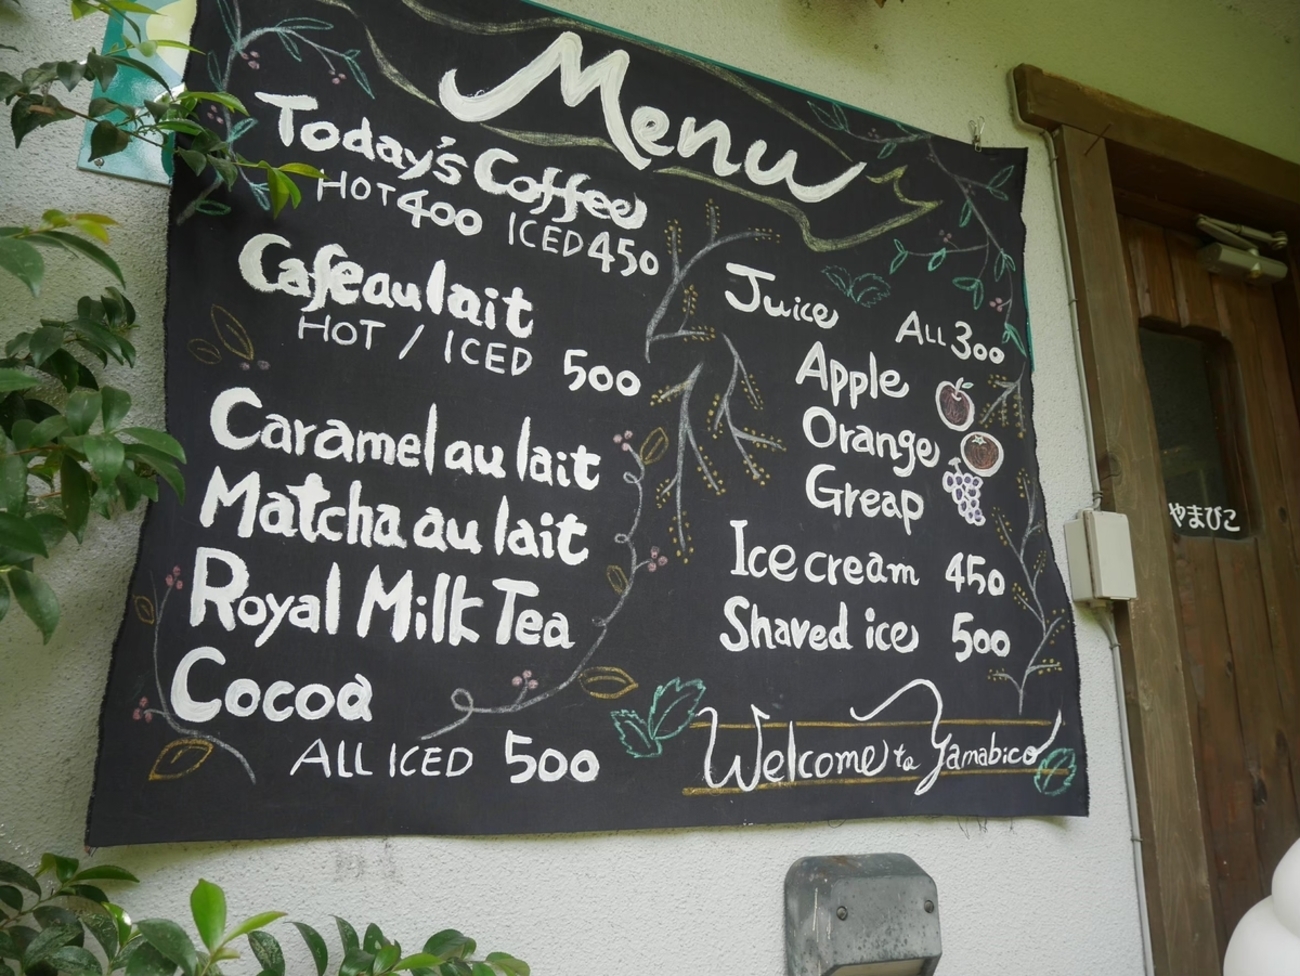 Menu
Today's Coffee
HOT 400 ICED 450
Cafe au lait
HOT / ICED 500
Caramel au lait
Matcha au lait
Royal Milk Tea
Cocoa
ALL ICED 500
Juice ALL 300
Apple
Orange
Greap
Ice cream 450
Shaved ice 500
Welcome to Yamabico
やまびこ